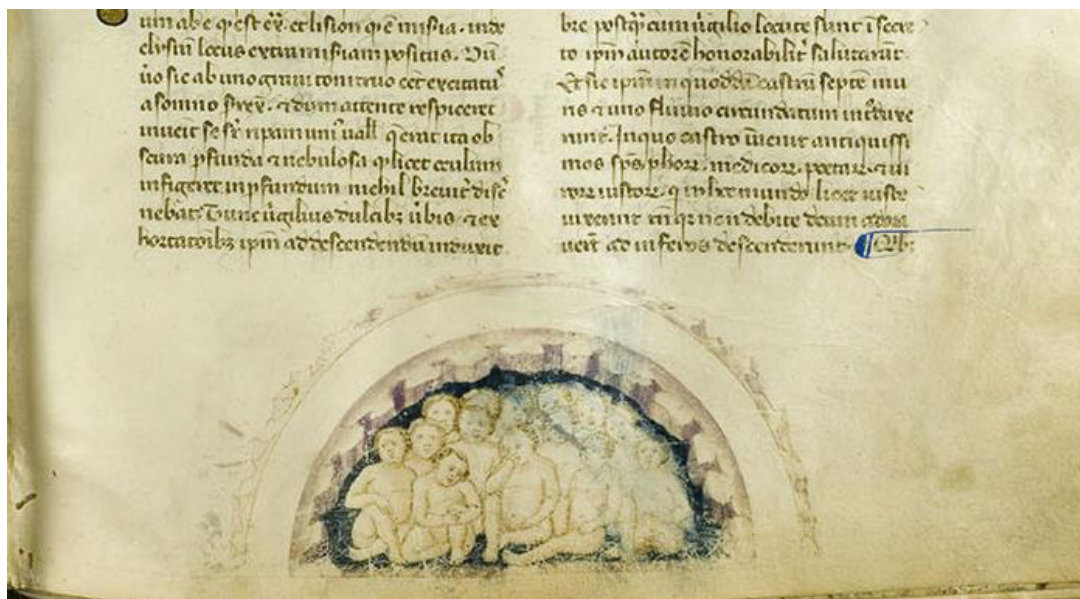 um ab e q̇ est ex̄. et lision q̇ ē misia. inde
elisiū locus extra misiam positus. Dū
ũo sic ab uno graui tonitruo eēt excitatꝰ
a somno ⁊ dum attente respiceret
inueīt se sr̄ ripam unī uall' q̇ erat ita ob
scura ꝓfunda ⁊ nebulosa ꝙ licet oculum
infigeret in ꝓfundum nichil breuit̄ disc̄
nebat. Tunc ũgilius dulcibꝫ ũbis ⁊ ex
hortatōibꝫ ipm̄ ad descendendū induxit.
bre postq̃ cum ũgilio locute sunt ī secre
to ipm̄ autorē honorabilit̄ salutarūt.
Et sic ipm̄ in quoddā castrū septē mu
ris ⁊ uno fluuio circundatum int̄duxe
runt. In quo castro īuenit antiquissi
mos sp̄s ph̄oꝝ. medicoꝝ. poetaꝝ. ⁊ ui
roꝝ iustoꝝ. q̇ in hoc mundo licet iuste
uixerint tn̄ qꝛ non debite deum adora
uerūt ad inferos descenderunt.